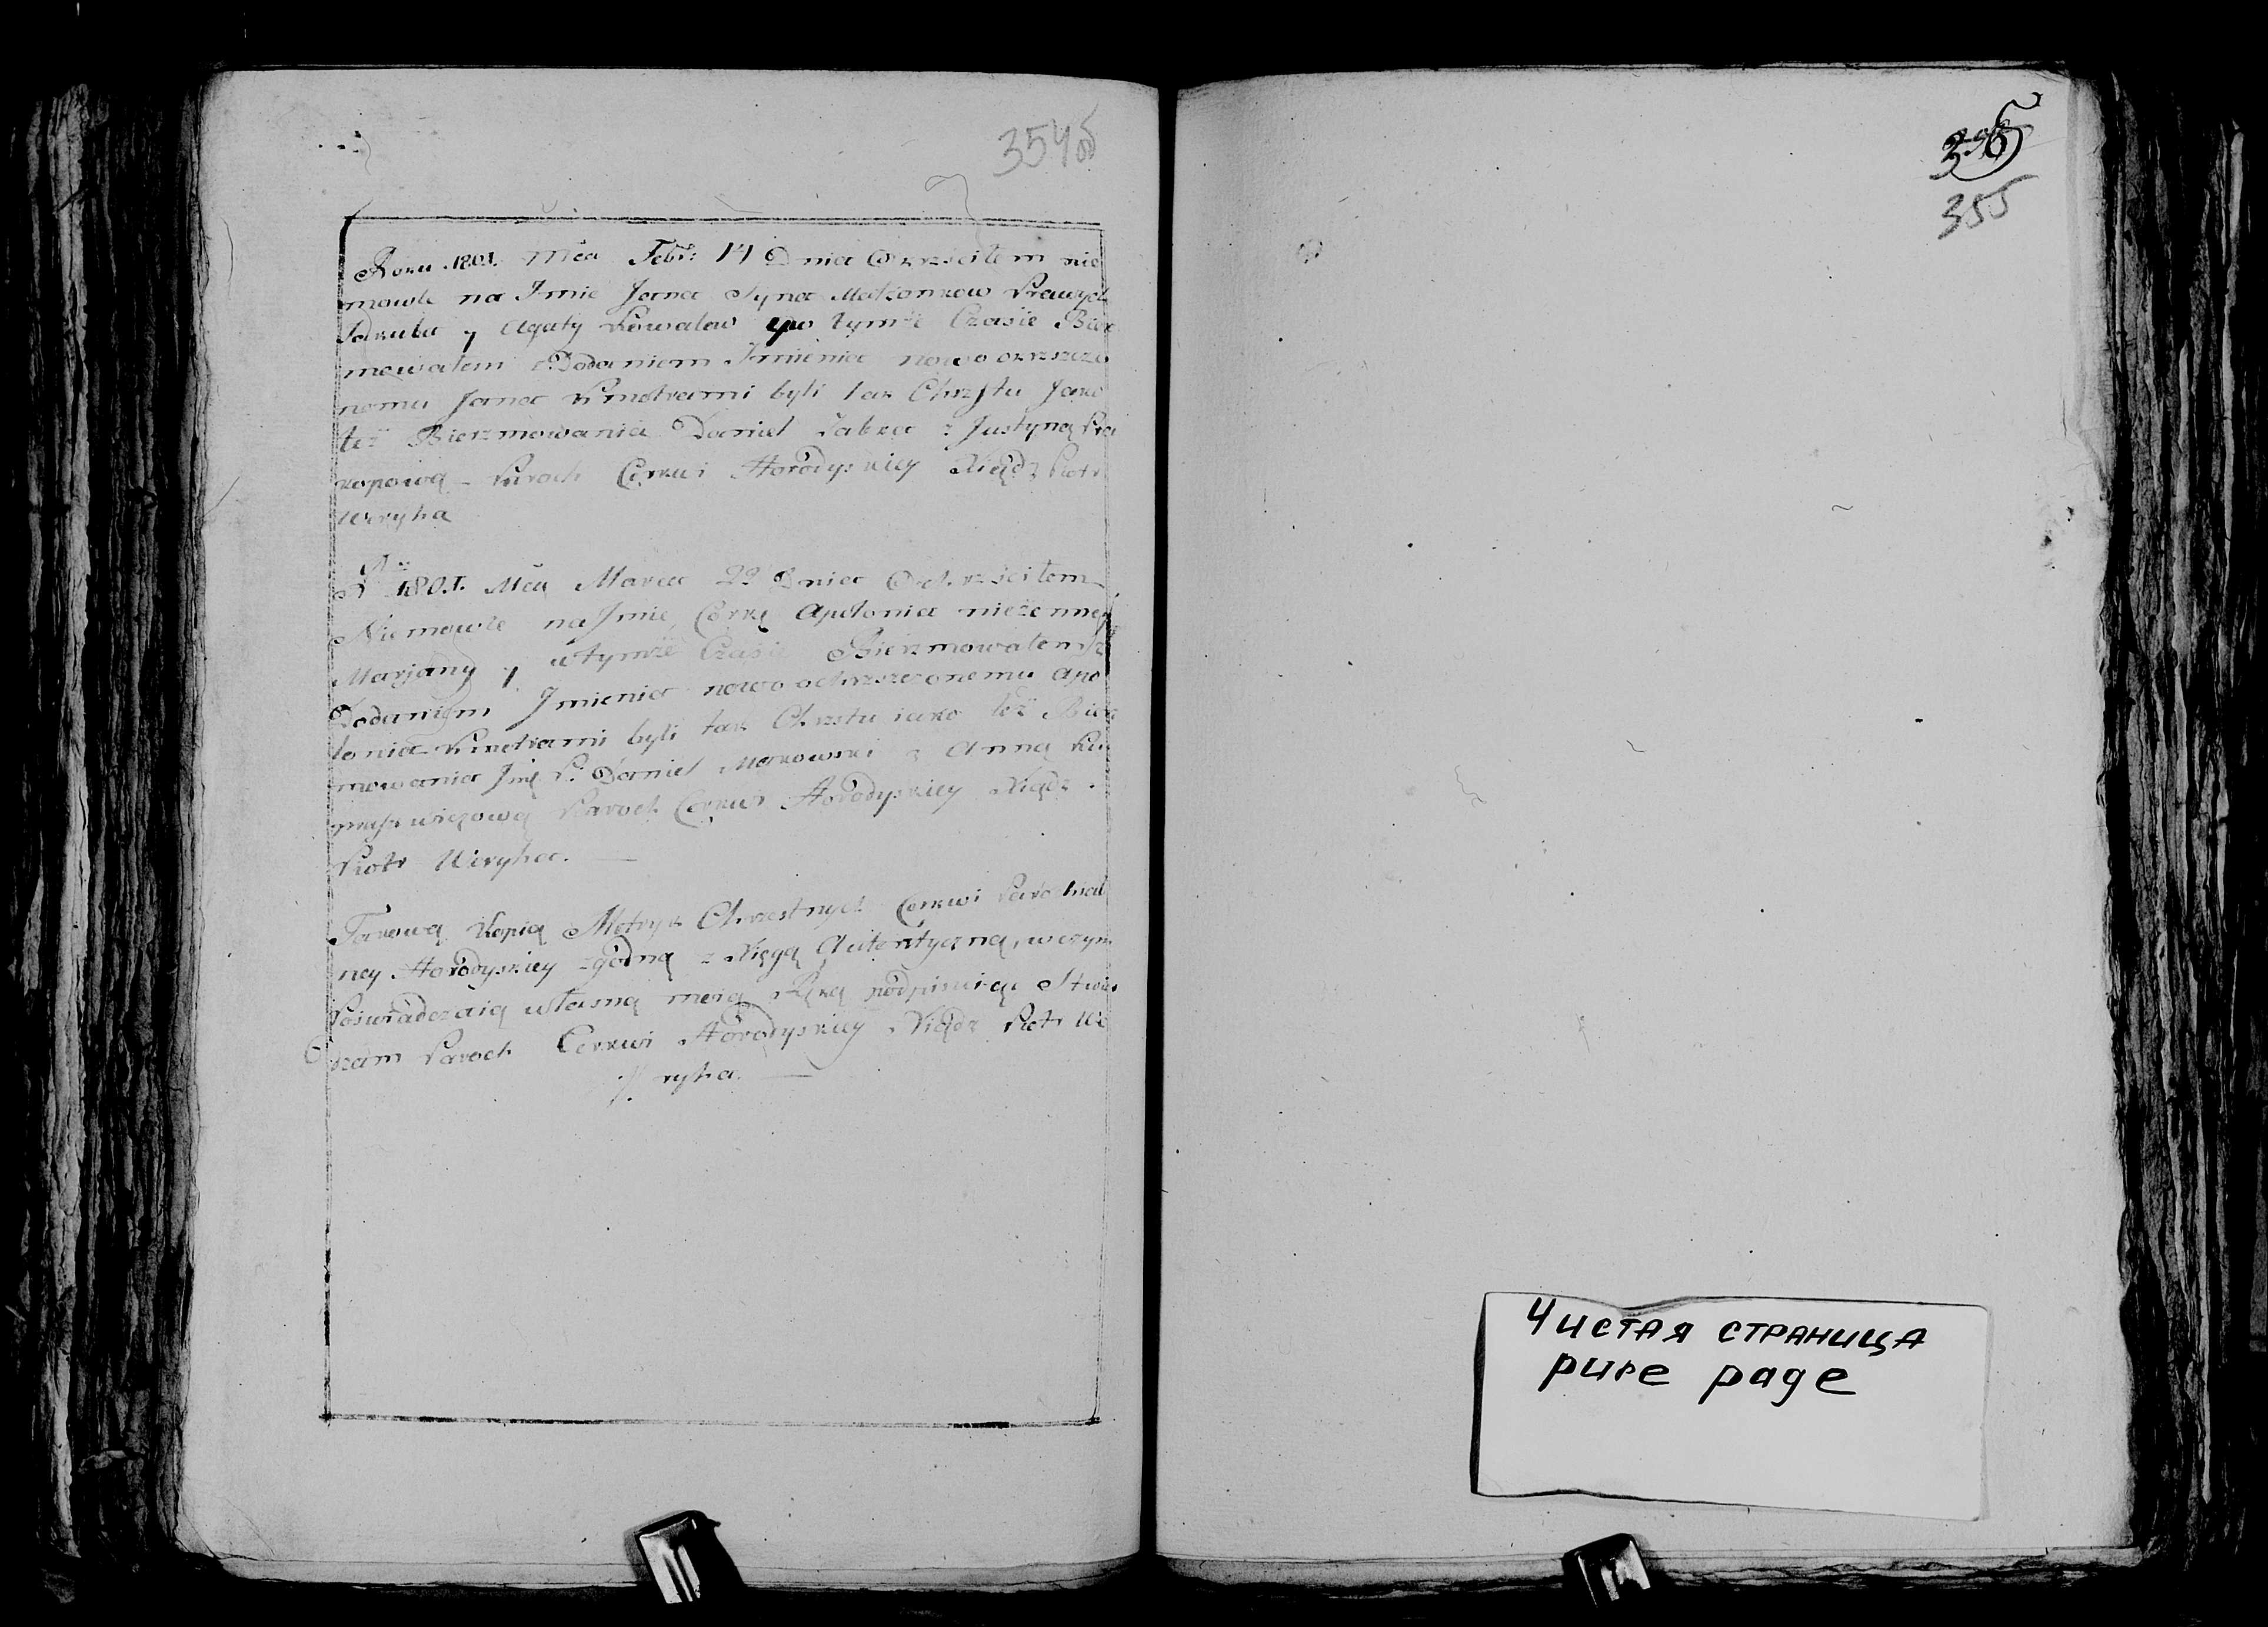 354об
Roku 1801. Mca Febr: 14 Dnia Okrzciłem nie
mowle na Imie Jana Syna Małżonkow Prawych
Jakuba y Agaty Kowalow y w tymże Czasie Bier
mowałem z Dodaniem Imienia nowo okrzczo
nemu Jana Kmotrami byli tak Chrztu Jako
też Bierzmowania Daniel Żabka z Justyną Pro
kopową – Paroch Cerkwi Horodyskiey Xiądz Piotr
Weryha
R. 1801. Mca Marca 29 Dnia Ochrzciłem
Niemowle na Imie Corkę Apolonia nieżenney
Marjany y w tymże Czasie Bierzmowałem z
Dodaniem Imienia nowo ochrzszczonemu Apo
lonia Kmotrami byli tak Chrzstu iako też Bierz
mowania P. Daniel Makowski z Anną
Paroch Cerkwi Horodyskiey Xiądz
Piotr Weryha. —
Takową Kopią Metryk Chrzestnych Cerkwi Parochial
ney Horodyskiey zgodną z Xięgą Autentyczną, w czym
Poswiadczaią własną moią Ręką podpisuiąc Stwier
dzam Paroch Cerkwi Horodyskiey Xiądz Piotr We
ryha. —
355
Чистая страница
pure page